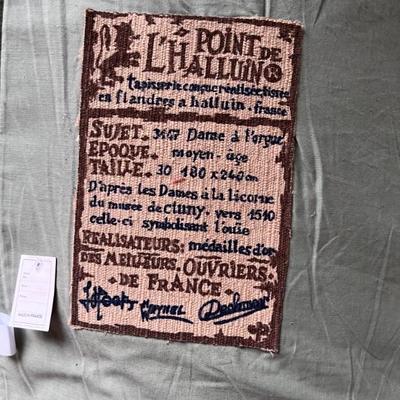 POINT DE
L'HALLUIN
tapisserie conçue réalisée tissée
en flandres à halluin. france
SUJET. 3447 Dame à l'orgue
EPOQUE. moyen-age
TAILLE. 30 180 x 240 cm
D'après les Dames à la licorne
du musée de cluny. vers 1510
celle-ci symbolisant l'ouïe
REALISATEURS. médailles d'or
DES MEILLEURS. OUVRIERS.
DE FRANCE.
MADE IN FRANCE